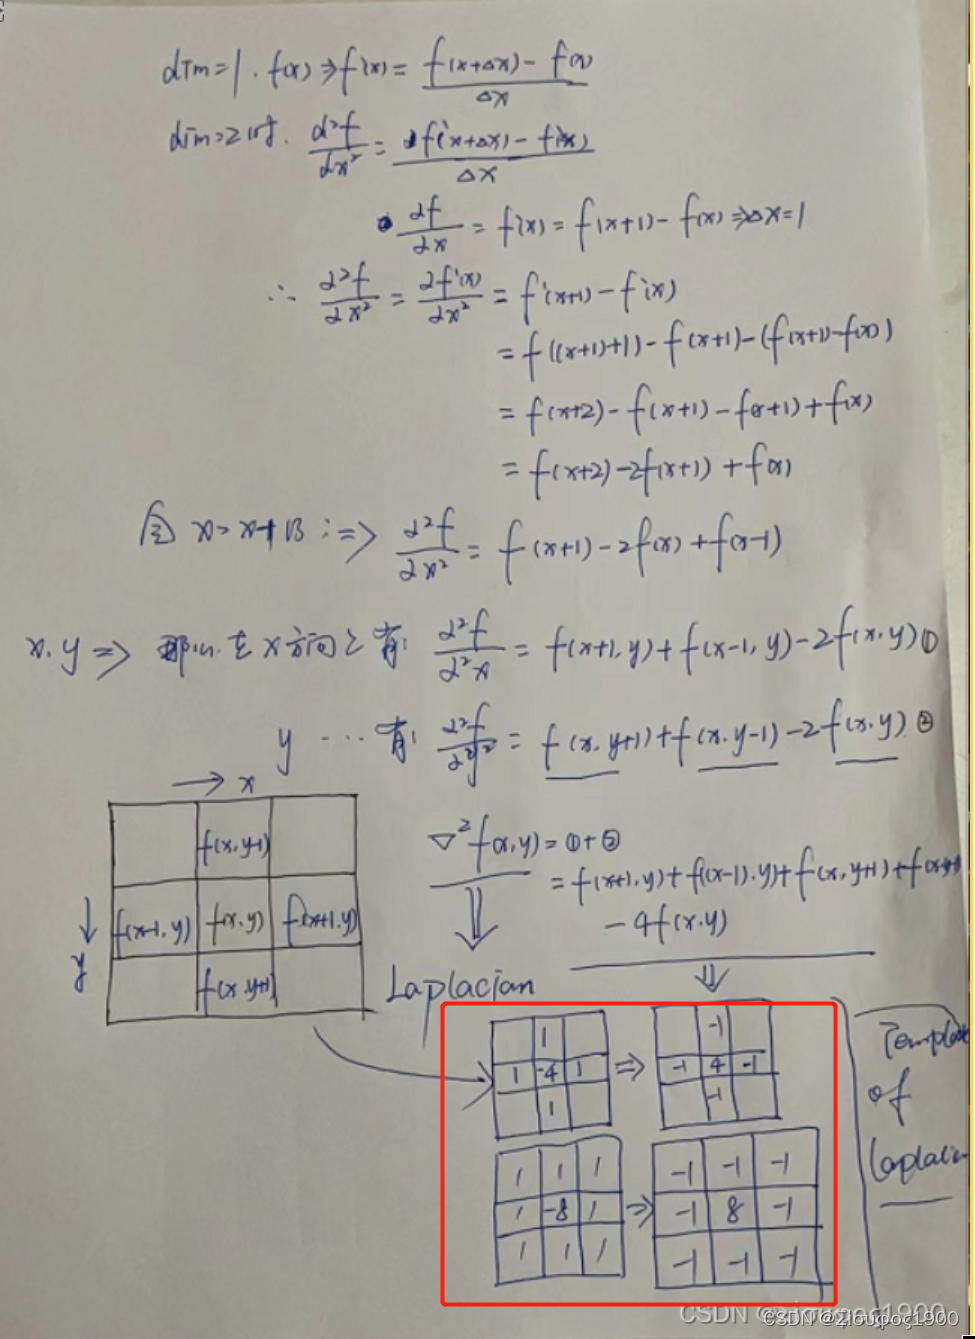 dim=1. f(x)⇒f'(x)= (f(x+Δx)-f(x))/Δx
dim=2时. d²f/dx² = (f'(x+Δx)-f'(x))/Δx
∂f/∂x = f'(x) = f(x+1)-f(x) ⇒Δx=1
∴ ∂²f/∂x² = ∂f'(x)/∂x² = f'(x+1)-f'(x)
= f((x+1)+1)-f(x+1)-(f(x+1)-f(x))
= f(x+2)-f(x+1)-f(x+1)+f(x)
= f(x+2)-2f(x+1)+f(x)
令 x= :⇒ ∂²f/∂x² = f(x+1)-2f(x)+f(x-1)
x.y ⇒ 那么在x方向上有: ∂²f/∂²x = f(x+1,y)+f(x-1,y)-2f(x,y) ①
y ··· 有: ∂²f/∂²y² = f(x,y+1)+f(x,y-1)-2f(x,y) ②
→ x
f(x,y-1)
↓ y
f(x-1,y) f(x,y) f(x+1,y)
f(x,y+1)
∇²f(x,y)=①+②
=f(x+1,y)+f((x-1),y)+f(x,y+1)+f(x,y-1)
-4f(x,y)
⇓
Laplacian
⇓
1
1 -4 1
1
⇒
-1
-1 4 -1
-1
1 1 1
1 -8 1
1 1 1
⇒
-1 -1 -1
-1 8 -1
-1 -1 -1
Template
of
Laplacian
CSDN @zioupoς1900